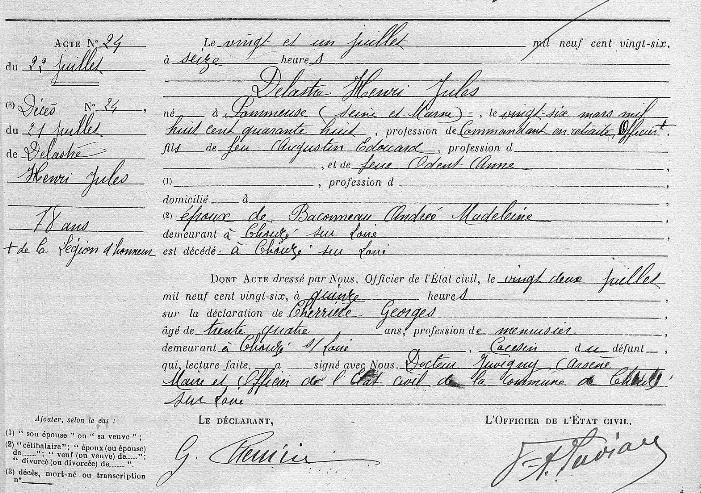 ACTE N° 24
du 22 juillet
(3) Décès N° 24,
du 21 juillet
de Delastre
Henri Jules
78 ans
+ de la Légion d'honneur
Le vingt et un juillet mil neuf cent vingt-six,
à seize heures
Delastre Henri Jules
né à Pommeuse (Seine et Marne), le vingt-six mars mil
huit cent quarante huit, profession de Commandant en retraite, Officier +
fils de feu Augustin Edouard, profession d
, et de feue Odent Anne
(1) , profession d
domicilié à
(2) époux de Baconneau Andrée Madeleine
demeurant à Chouzé sur Loire
est décédé à Chouzé sur Loire
DONT ACTE dressé par Nous, Officier de l'État civil, le vingt deux juillet
mil neuf cent vingt-six, à quinze heures
sur la déclaration de Georges
âgé de trente quatre ans, profession de menuisier
demeurant à Chouzé s/ Loire, du défunt,
qui, lecture faite, a signé avec Nous, Docteur Juvigny Arsène
Maire et Officier de l'Etat civil de la commune de Chouzé
sur Loire
LE DÉCLARANT,
L'OFFICIER DE L'ÉTAT CIVIL,
G.
Ajouter, selon le cas :
(1) "son épouse" ou "sa veuve" ;
(2) "célibataire" ; "époux (ou épouse)
de "; "veuf (ou veuve) de ";
"divorcé (ou divorcée) de "
(3) décès, mort-né ou transcription
n°